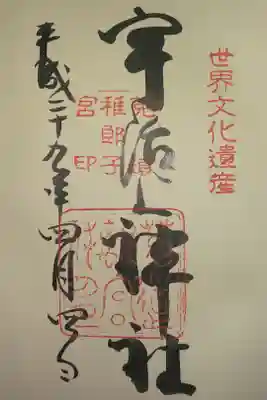 世界文化遺産
宇治上神社
稚郎子
宮印
平成二十九年四月四日